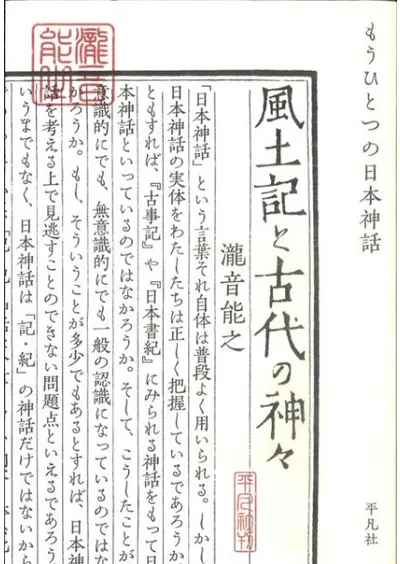 もうひとつの日本神話
風土記と古代の神々
瀧音能之
平凡社
平凡社刊
瀧音
能之
「日本神話」という言葉それ自体は普段よく用いられる。しかし
日本神話の実体をわたしたちは正しく把握しているであろうか
ともすれば、『古事記』や『日本書紀』にみられる神話をもって日
本神話といっているのではなかろうか。そして、こうしたことが
意識的にでも、無意識的にでも一般の認識になっているのではな
かろうか。もし、そういうことが多少でもあるとすれば、日本神
話を考える上で見逃すことのできない問題点といえるであろう
いうまでもなく、日本神話は「記・紀」の神話だけではないから